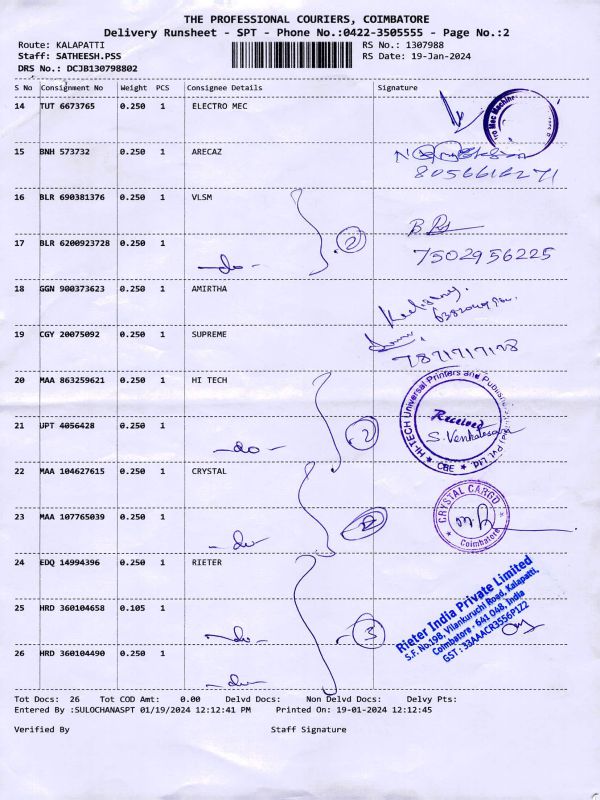 THE PROFESSIONAL COURIERS, COIMBATORE
Delivery Runsheet - SPT - Phone No.:0422-3505555 - Page No.:2
Route: KALAPATTI RS No.: 1307988
Staff: SATHEESH.PSS RS Date: 19-Jan-2024
DRS No.: DCJB130798802
S No Consignment No Weight PCS Consignee Details Signature
14 TUT 6673765 0.250 1 ELECTRO MEC
15 BNH 573732 0.250 1 ARECAZ
8056616271
16 BLR 690381376 0.250 1 VLSM
17 BLR 6200923728 0.250 1
-do- 2 7502956225
18 GGN 900373623 0.250 1 AMIRTHA
19 CGY 20075092 0.250 1 SUPREME
20 MAA 863259621 0.250 1 HI TECH
HI-TECH Universal Printers and Pvt. Ltd. ★ CBE ★
Received
S. Venkatesan
21 UPT 4056428 0.250 1
-do- 2
22 MAA 104627615 0.250 1 CRYSTAL
CRYSTAL CARGO
★ Coimbatore ★
23 MAA 107765039 0.250 1
-do- 2
24 EDQ 14994396 0.250 1 RIETER
Rieter India Private Limited
S.F. No.198, Vilankuruchi Road, Kalapatti,
Coimbatore - 641 048, India
GST : 33AAACR3556P1Z2
25 HRD 360104658 0.105 1
-do- 3
26 HRD 360104490 0.250 1
-do-
Tot Docs: 26 Tot COD Amt: 0.00 Delvd Docs: Non Delvd Docs: Delvy Pts:
Entered By :SULOCHANASPT 01/19/2024 12:12:41 PM Printed On: 19-01-2024 12:12:45
Verified By Staff Signature